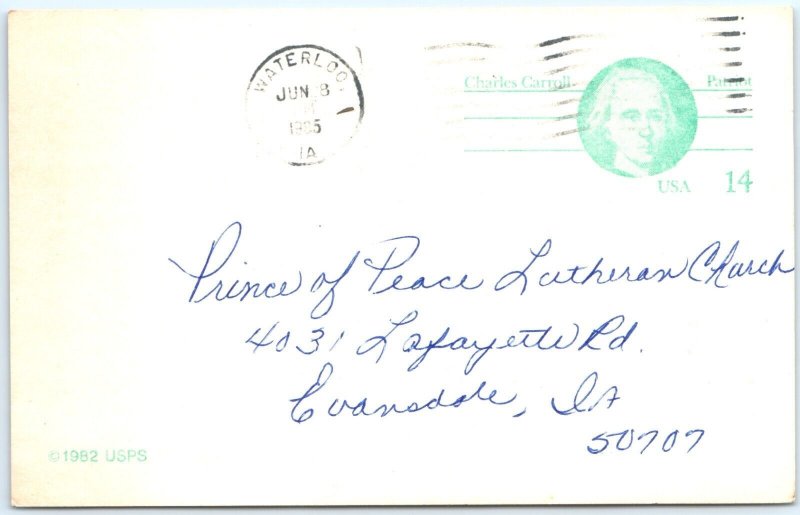 WATERLOO,
JUN 8
1985
IA
Charles Carroll Patriot
USA 14
Prince of Peace Lutheran Church
4031 Lafayette Rd.
Evansdale, IA
50707
©1982 USPS